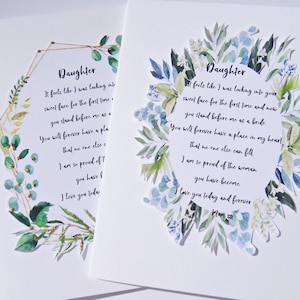 Daughter
It feels like I was looking into your
sweet face for the first time and now
you stand before me as a bride.
You will forever have a place in my
that no one else can fill
I am so proud of the woman
you have become.
I love you today
Daughter
It feels like I was looking into your
sweet face for the first time and now
you stand before me as a bride.
You will forever have a place in my heart
that no one else can fill
I am so proud of the woman
you have become.
I love you today and forever
Mum